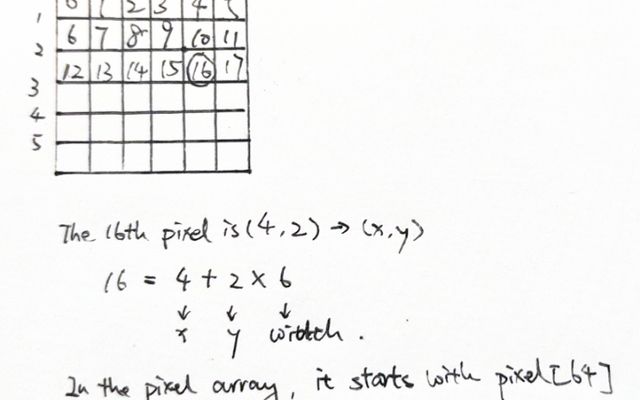 0 1 2 3 4 5
1
6 7 8 9 10 11
2
12 13 14 15 16 17
3
4
5
The 16th pixel is (4,2) → (x,y)
16 = 4 + 2 × 6
↓ ↓ ↓
x y width.
In the pixel array, it starts with pixel[64]